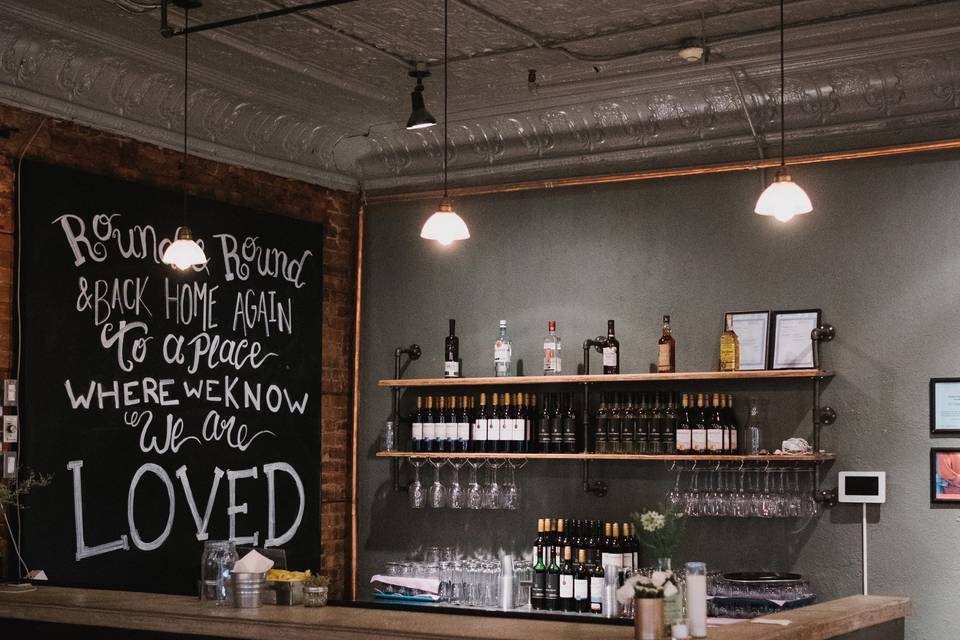 Round & Round
& BACK HOME AGAIN
To a place
WHERE WE KNOW
We are
LOVED